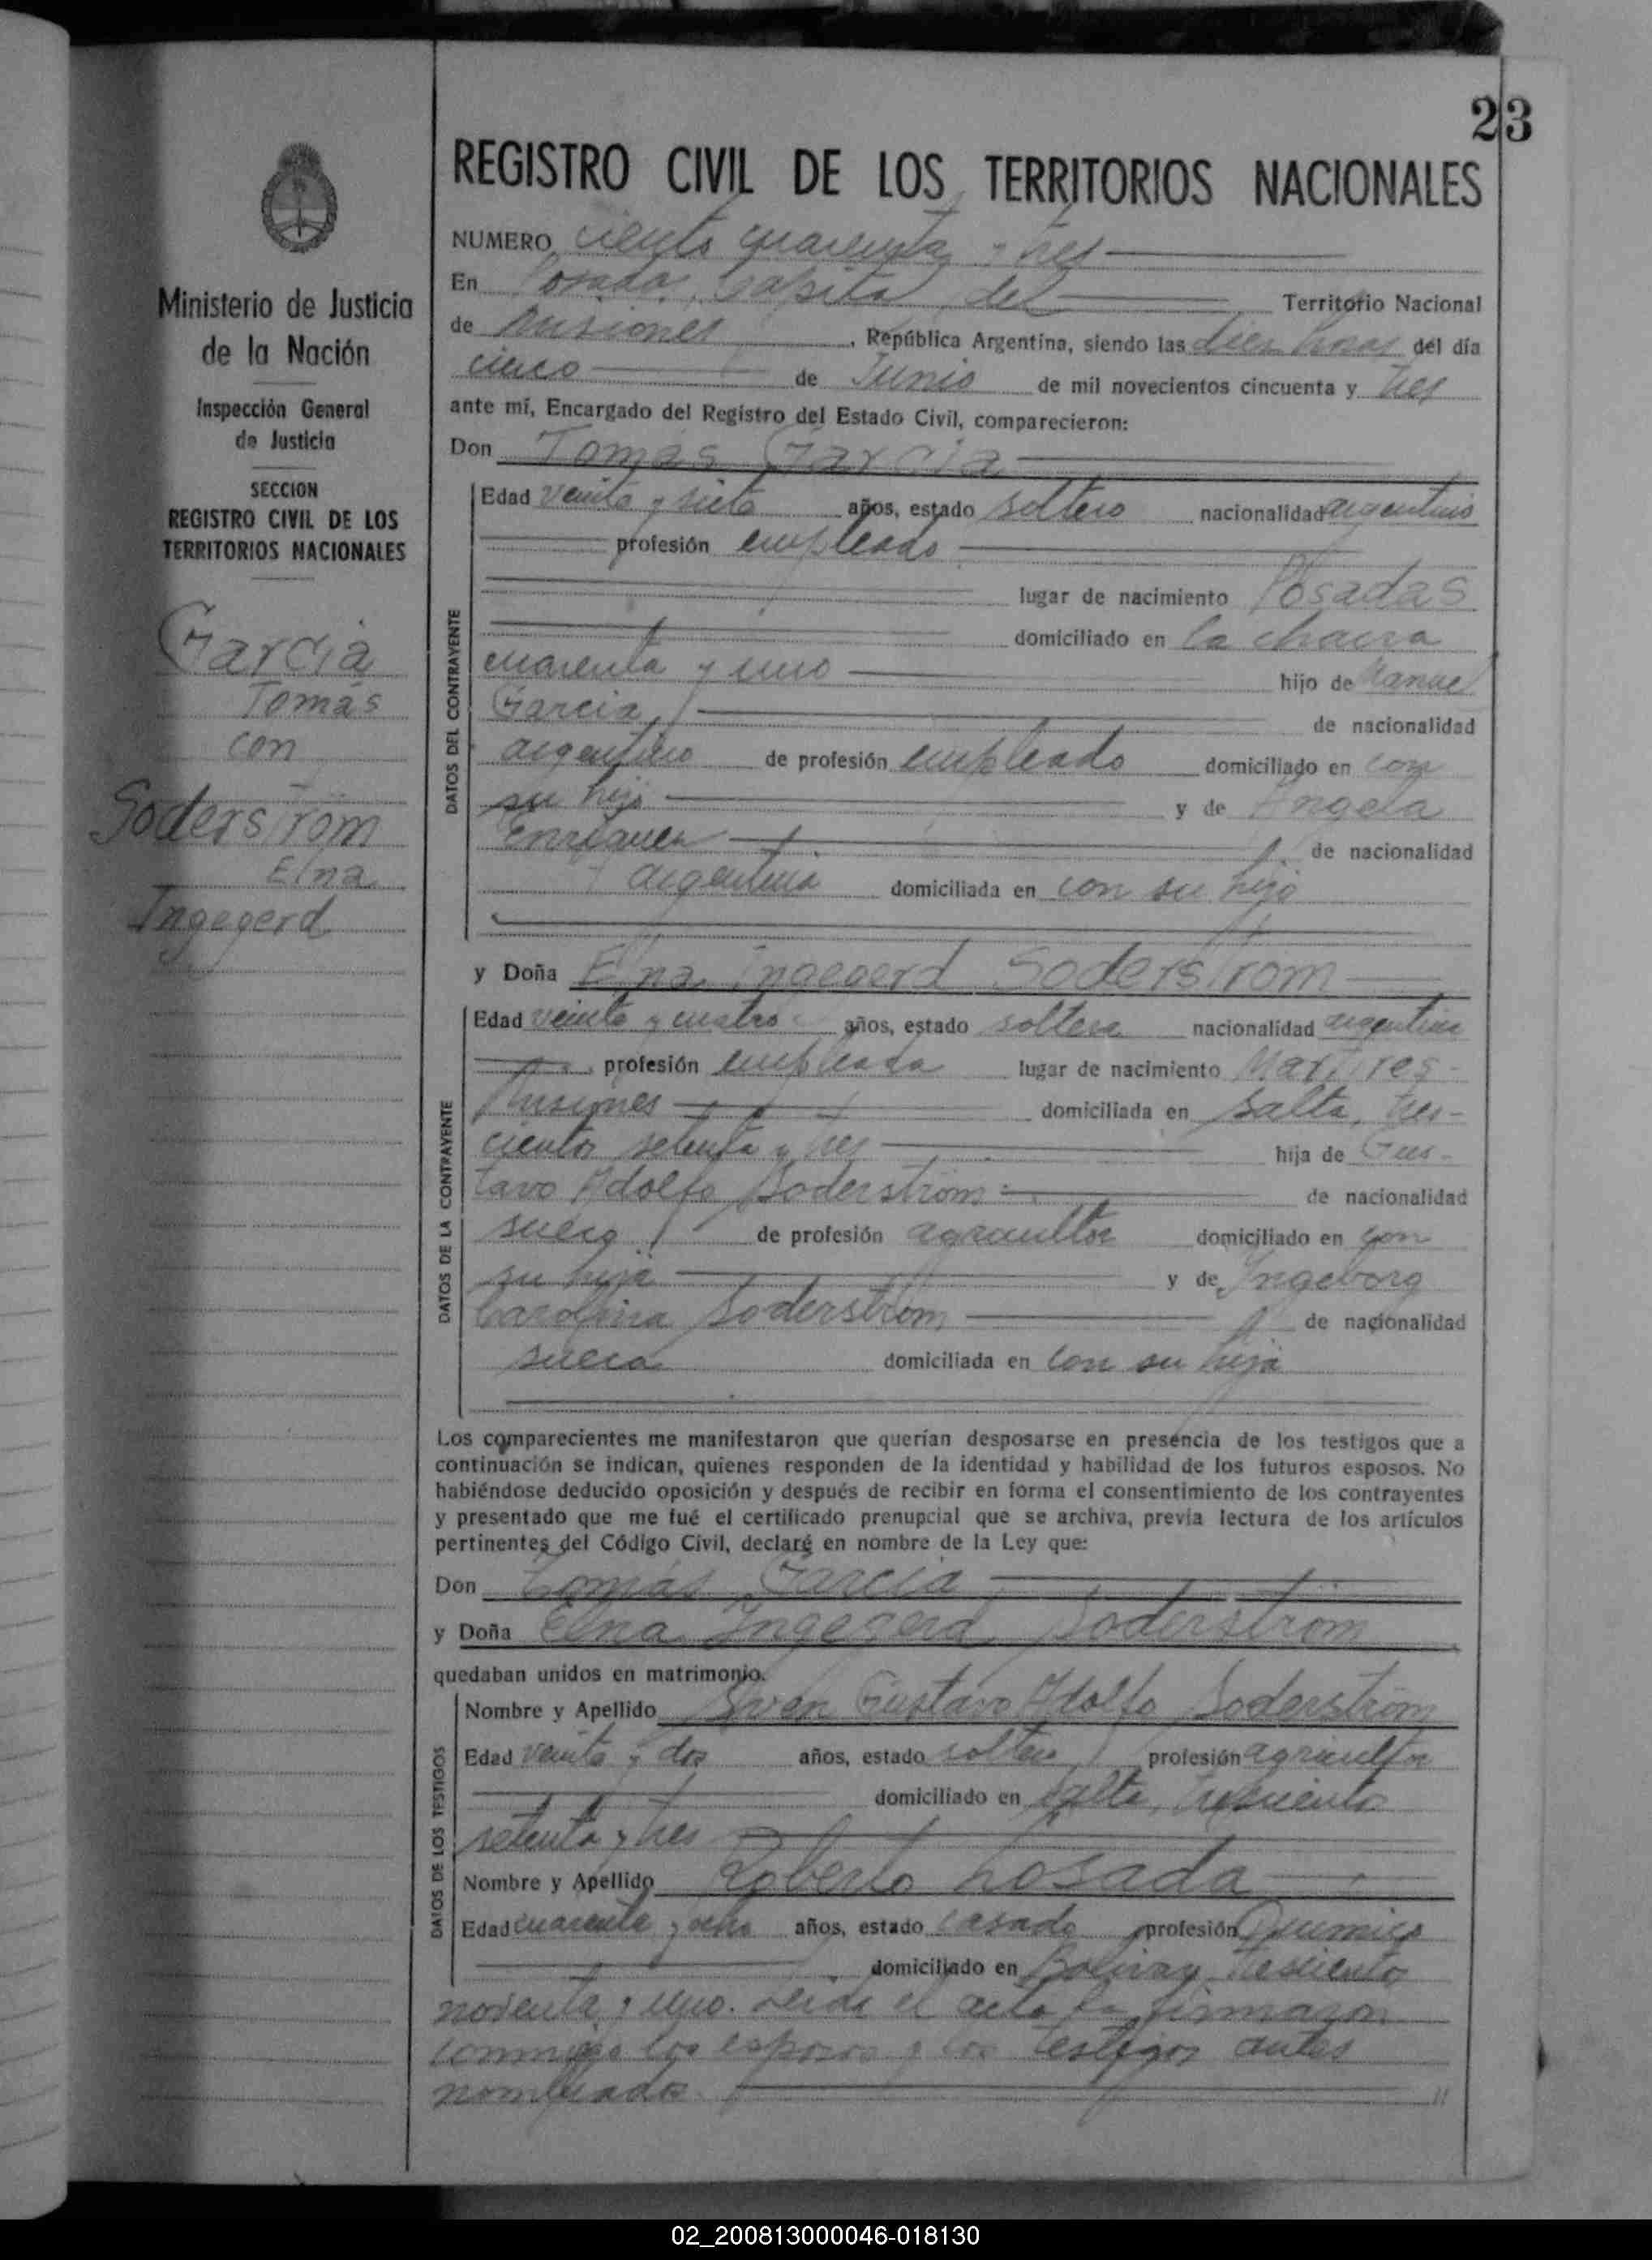 23
REGISTRO CIVIL DE LOS TERRITORIOS NACIONALES
Ministerio de Justicia
de la Nación
Inspección General
de Justicia
SECCION
REGISTRO CIVIL DE LOS
TERRITORIOS NACIONALES
García
Tomás
con
Soderström
Elna
Ingegerd
NUMERO ciento cuarenta y tres
En Posadas, Capital del Territorio Nacional
de Misiones, República Argentina, siendo las diez horas del día
cinco de Junio de mil novecientos cincuenta y tres
ante mí, Encargado del Registro del Estado Civil, comparecieron:
Don Tomás García
DATOS DEL CONTRAYENTE
Edad veinte y siete años, estado soltero nacionalidad argentino
profesión empleado
lugar de nacimiento Posadas
domiciliado en la chacra
cuarenta y uno hijo de Manuel
García, de nacionalidad
argentino de profesión empleado domiciliado en con
su hijo y de Angela
Enriquez de nacionalidad
argentina domiciliada en con su hijo
y Doña Elna Ingegerd Soderström
DATOS DE LA CONTRAYENTE
Edad veinte y cuatro años, estado soltera nacionalidad argentina
profesión empleada lugar de nacimiento Martires-
Misiones domiciliada en Salta, tres-
cientos setenta y tres hija de Gus-
tavo Adolfo Soderström de nacionalidad
sueco de profesión agricultor domiciliado en con
su hija y de Ingeborg
Carolina Soderström de nacionalidad
sueca domiciliada en con su hija
Los comparecientes me manifestaron que querían desposarse en presencia de los testigos que a
continuación se indican, quienes responden de la identidad y habilidad de los futuros esposos. No
habiéndose deducido oposición y después de recibir en forma el consentimiento de los contrayentes
y presentado que me fué el certificado prenupcial que se archiva, previa lectura de los artículos
pertinentes del Código Civil, declaré en nombre de la Ley que:
Don Tomás García
y Doña Elna Ingegerd Soderström
quedaban unidos en matrimonio.
DATOS DE LOS TESTIGOS
Nombre y Apellido Sven Gustavo Adolfo Soderström
Edad veinte y dos años, estado soltero profesión agricultor
domiciliado en Salta, trescientos
setenta y tres
Nombre y Apellido Roberto Losada
Edad cuarenta y ocho años, estado casado profesión Quimico
domiciliado en Bolivar, trescientos
noventa y uno. Leida el acta la firmaron
conmigo los esposos y los testigos antes
nombrados.
02_200813000046-018130